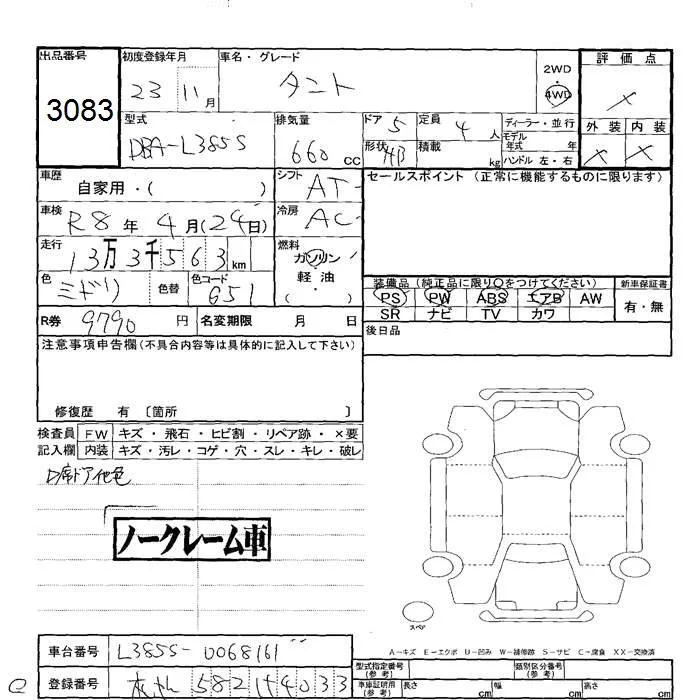 出品番号 初度登録年月 車名・グレード 2WD 評価点
3083 23 11月 タント 4WD ×
型式 排気量 ドア 5 定員 4人 ディーラー・並行 外装 内装
DBA-L385S 660 CC 形状 HB 積載 kg モデル年式 年 × ×
ハンドル 左・右
車歴 自家用・( ) シフト AT セールスポイント (正常に機能するものに限ります)
車検 R8年4月(24日) 冷房 AC
走行 13万3千563km 燃料 ガソリン
軽油
・( )
色 ミドリ 色替 色コード 651
装備品 (純正品に限り○をつけてください) 新車保証書
PS PW ABS エアB AW 有・無
SR ナビ TV カワ
R券 9790円 名変期限 月 日 後日品
注意事項申告欄(不具合内容等は具体的に記入して下さい)
修復歴 有 〔箇所 〕
検査員 FW キズ・飛石・ヒビ割・リペア跡・×要
記入欄 内装 キズ・汚レ・コゲ・穴・スレ・キレ・破レ
D席ドア他色
ノークレーム車
スペア
A−キズ E−エクボ U−凹み W−補修跡 S−サビ C−腐食 XX−交換済
車台番号 L385S-0068161
型式指定番号(参考) 類別区分番号(参考)
登録番号 582 4033
車庫証明用(参考) 長さ cm 幅 cm 高さ cm